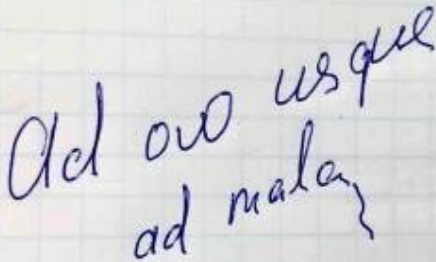 Ad ovo usque
ad mala